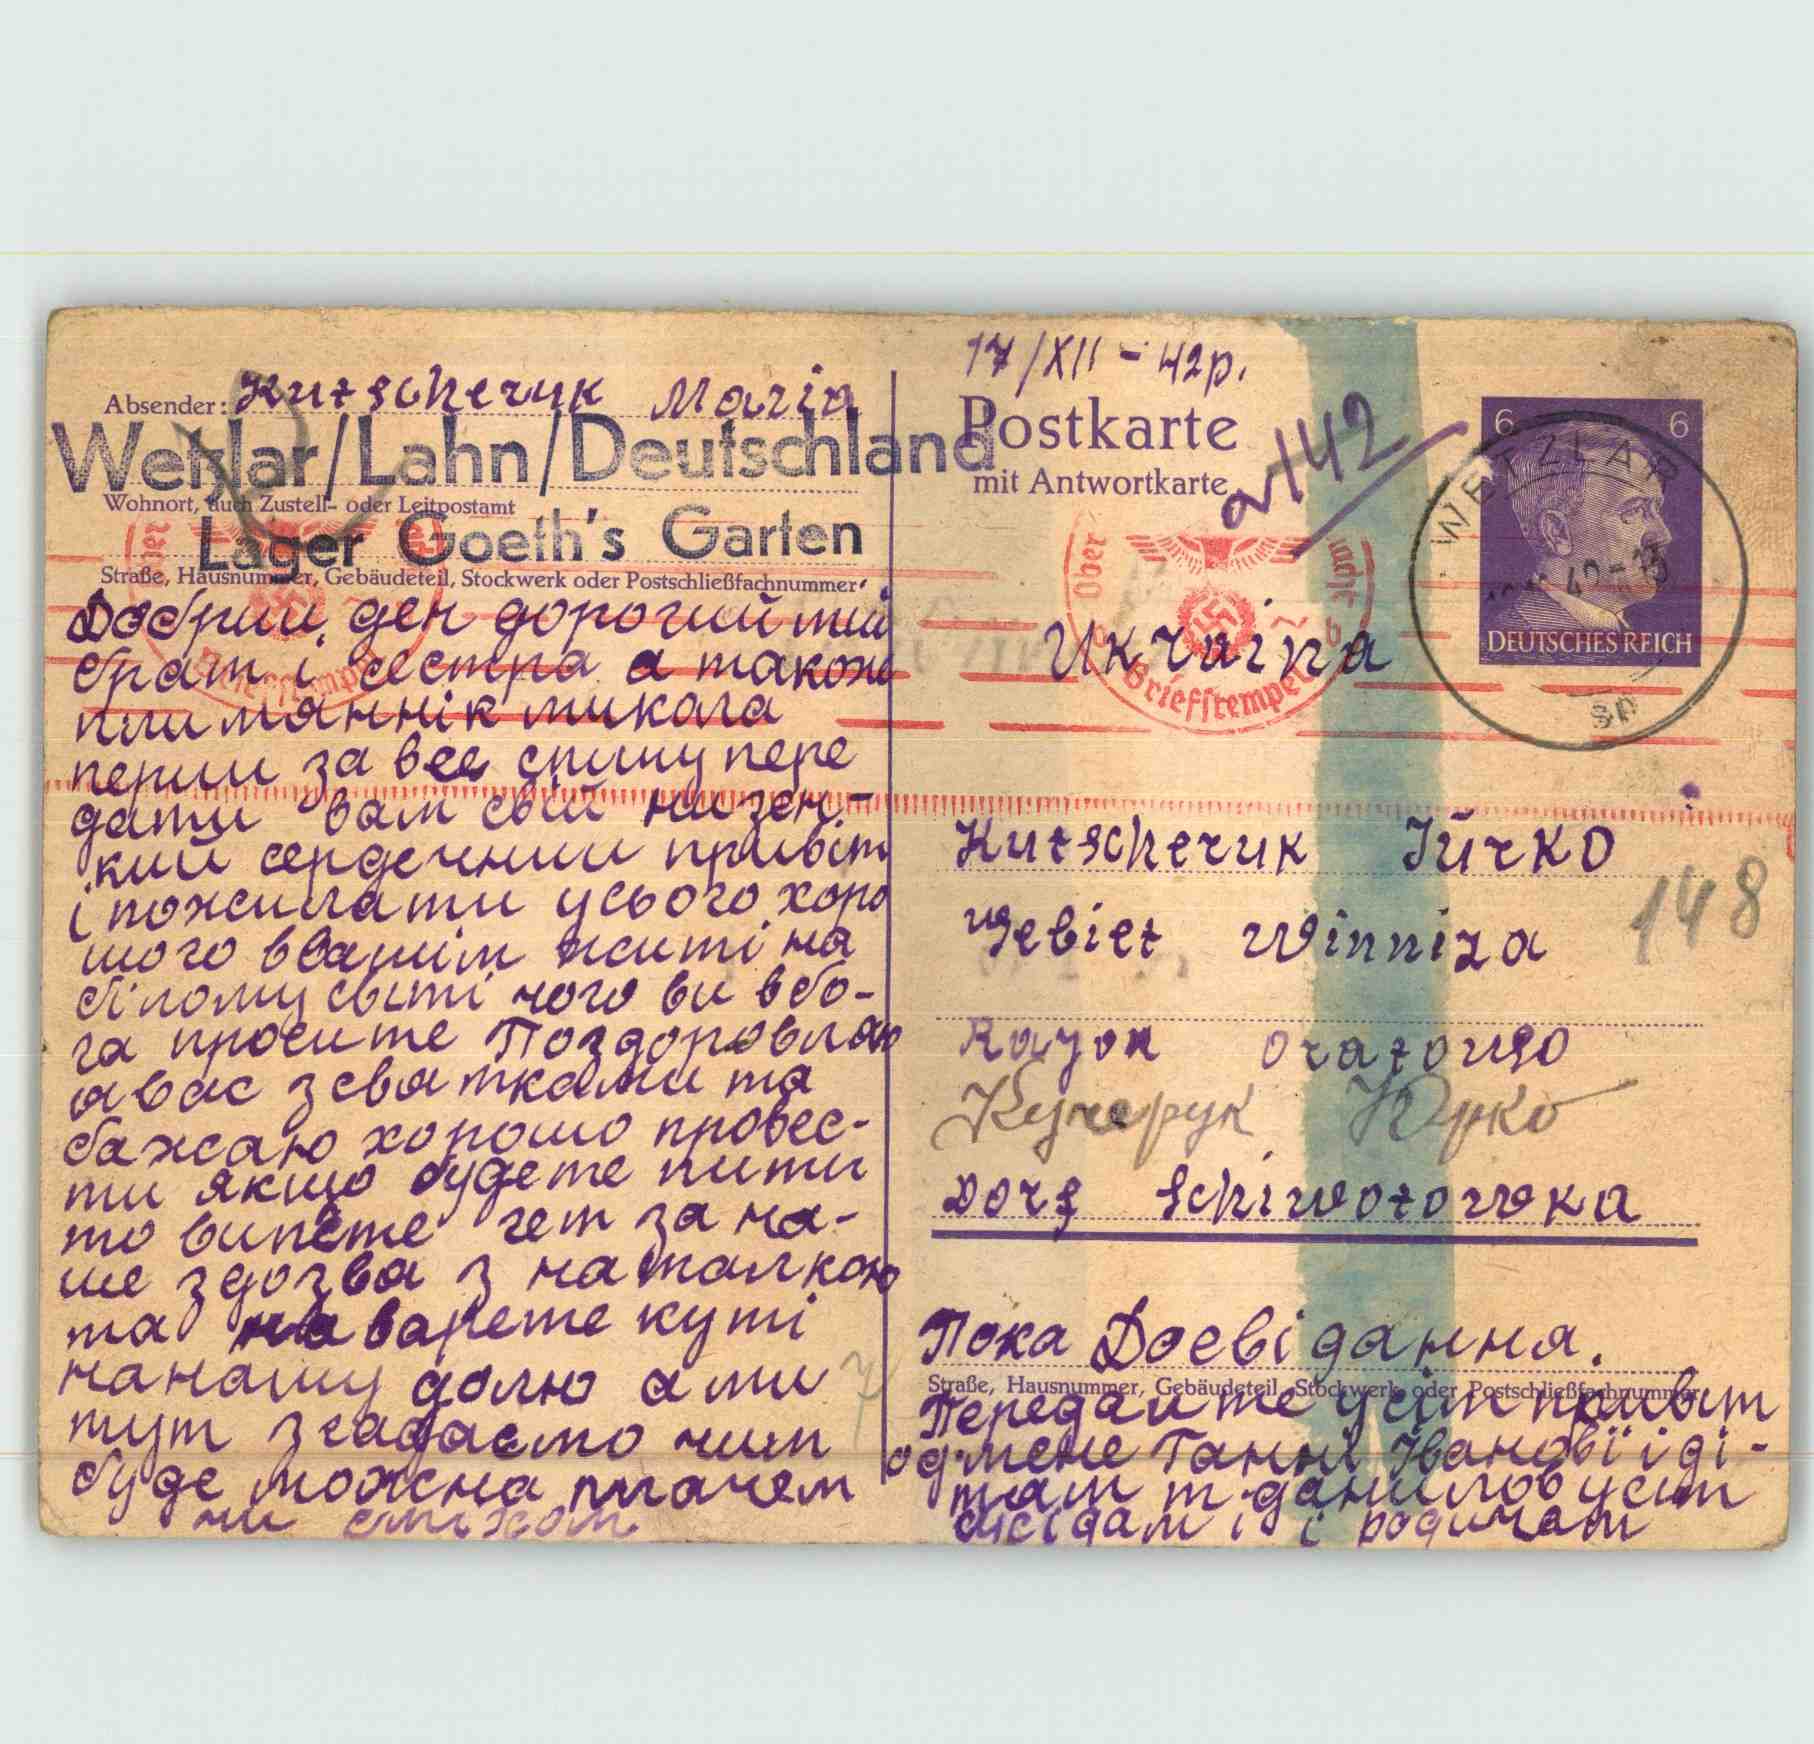 Absender: Kutscheruk Maria
Wetzlar/Lahn/Deutschland
Wohnort, auch Zustell- oder Leitpostamt
Lager Goeth's Garten
Straße, Hausnummer, Gebäudeteil, Stockwerk oder Postschließfachnummer
Добрий ден дорогий мій
брат і сестра а також
плимяннік микола
перш за все спішу пере
дати вам свій низен-
кий сердечний привіт
і пожилати усього хоро
шого в вашім житі на
білому світі чого ви в бо-
га просите Поздоровляю
я вас з святками та
бажаю хорошо провес-
ти якшо будете пити
то випете чет за на-
ше здозва з наталкою
та на варете куті
на нашу долю а ми
тут згадаємо чим
буде можна плачем
чи сміхом
17/XII - 42р.
Postkarte
mit Antwortkarte
a 142
6 6
DEUTSCHES REICH
WETZLAR
42-13
sp
Ober
Briefstempel
b
Ukraina
Kutscheruk Jürko
148
Gebiet Winniza
Rayon Oratowo
Кучерук Юрко
Dorf Schiwotowka
Пока Досвідання.
Straße, Hausnummer, Gebäudeteil, Stockwerk oder Postschließfachnummer
Передайте усім привіт
од мене Ганні Івановії і ді-
там т. данилов усим
сусідам і і родичам